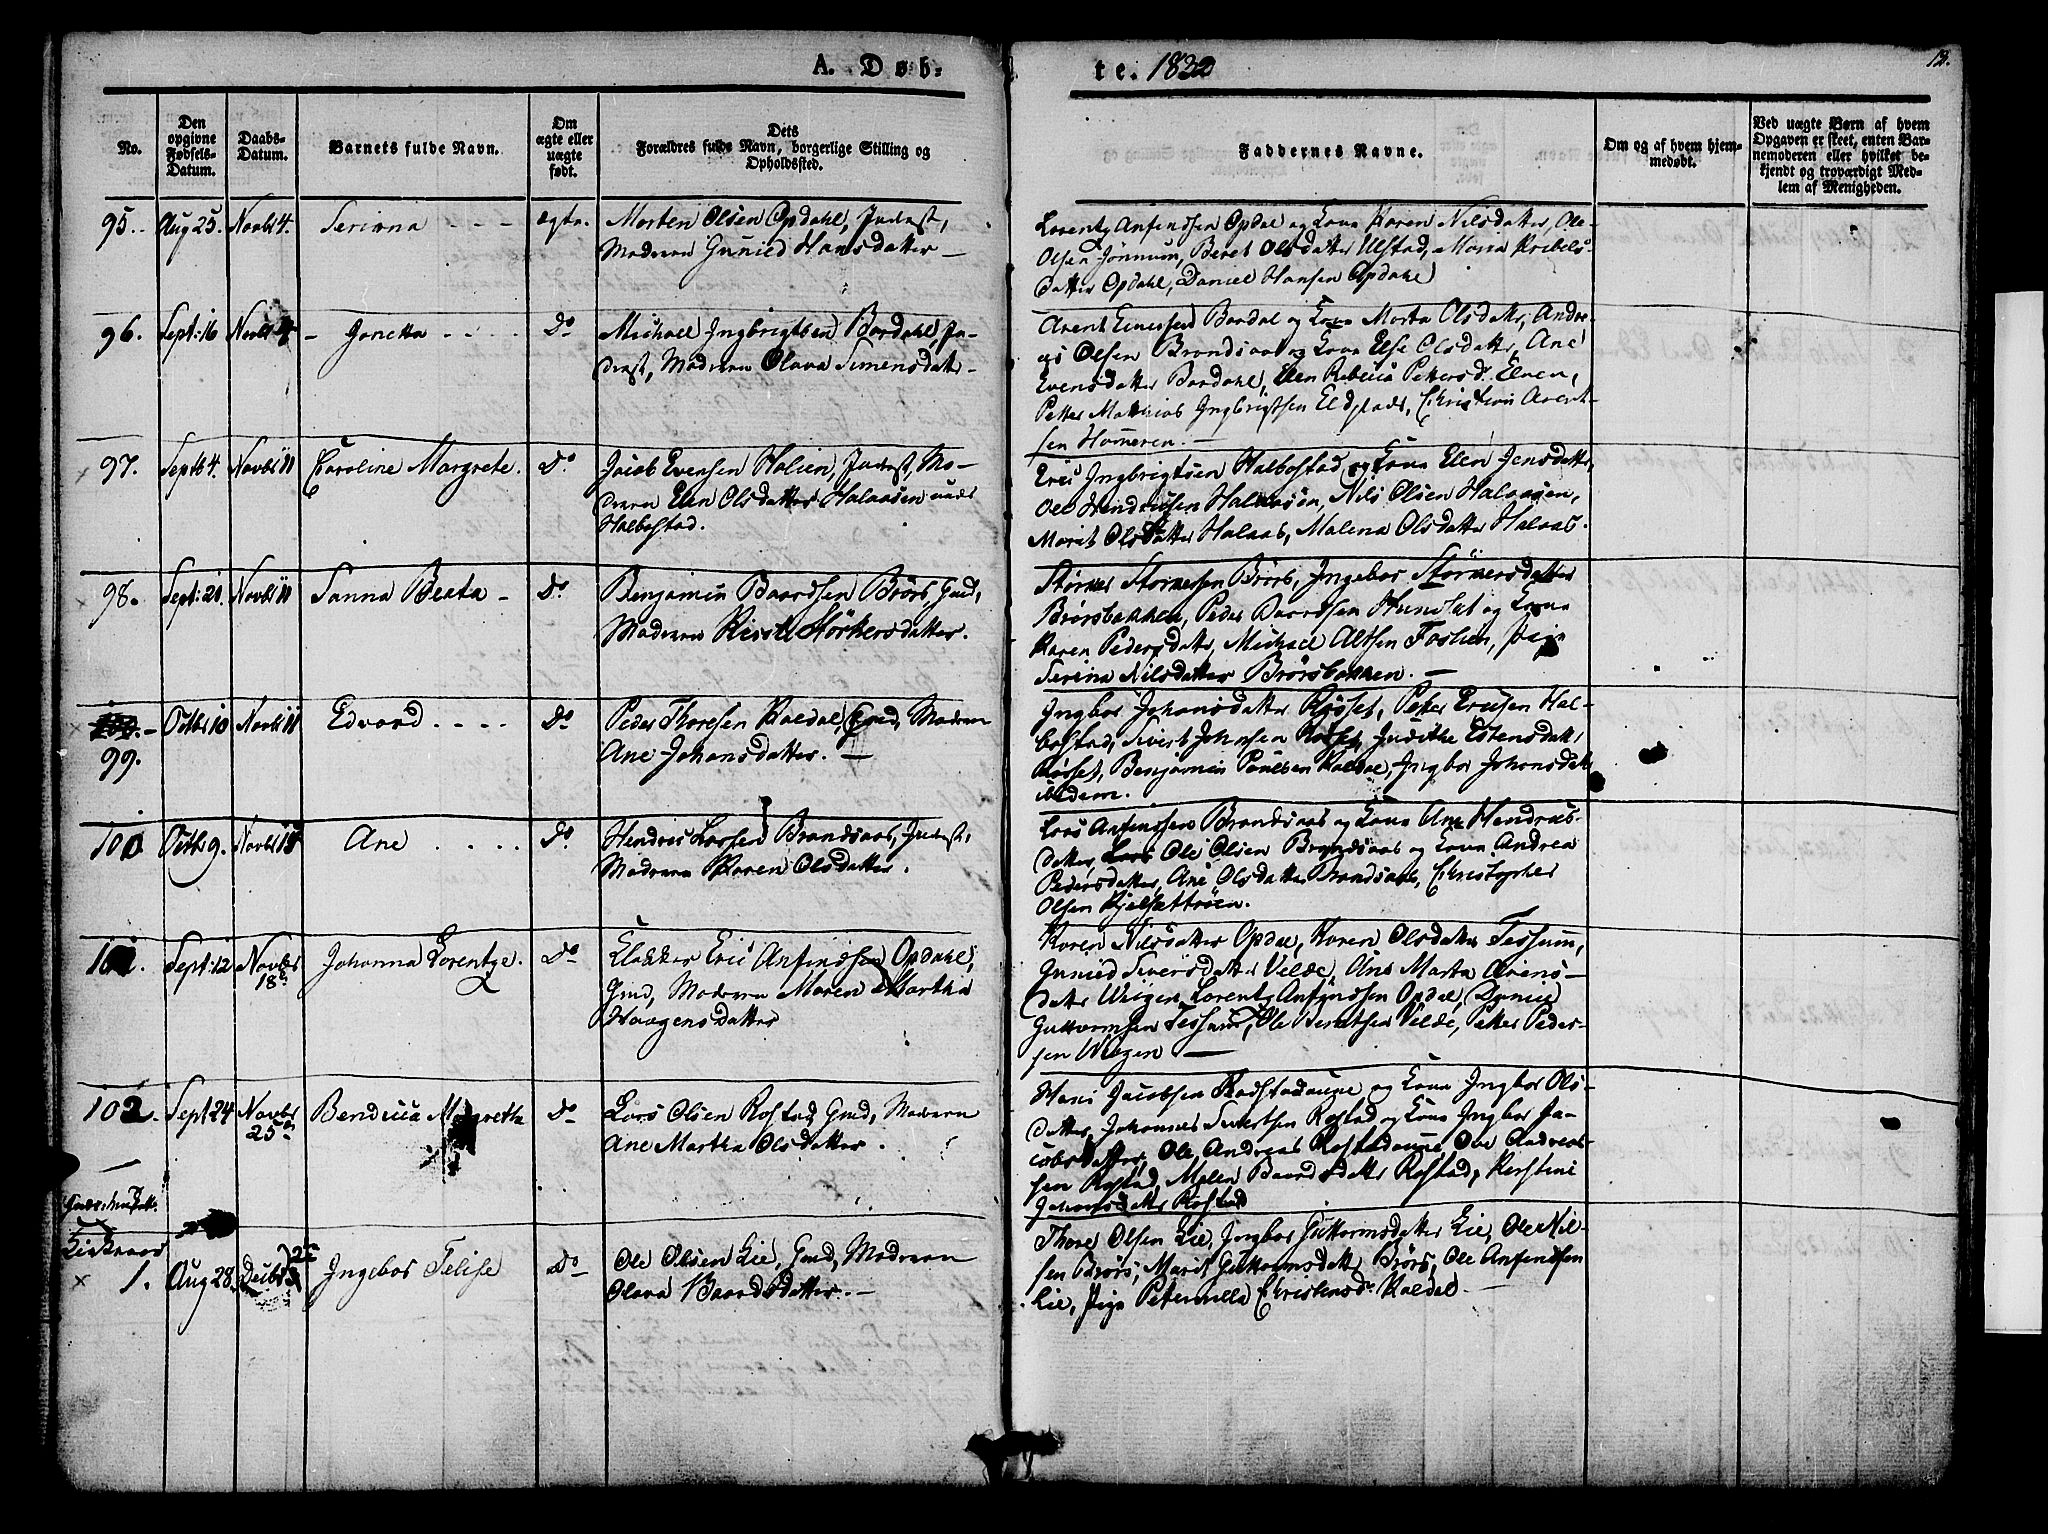 A. Døb-
te. 1832
12.
No.
Den
opgivne
Fødsels-
Datum.
Daabs-
Datum.
Barnets fulde Navn.
Om
ægte eller
uægte
født.
Dets
Forældres fulde Navn, borgerlige Stilling og
Opholdssted.
Faddernes Navne.
Om og af hvem hjem-
medøbt.
Ved uægte Børn af hvem
Opgaven er skeet, enten Bar-
nemoderen eller hvilket be-
kjendt og troværdigt Med-
lem af Menigheden.
95. Aug 25. Novbr 4. Serianna ægte. Morten Olsen Opdahl, Inderst,
Moderen Hansdatter
Lorentz Anfindsen Opdal og Kona Karen Nilsdatter, Ole
Olsen Beret Olsdatter Ulstad, Maria
datter Opdahl, Daniel Hansen Opdahl
96. Sept: 16 Novbr 4 Jonetta Do Michael Ingbrigtsen Bardahl, In-
derst, Moderen Olava Simensdatr
Arent Bardal og Kona Marta Olsdatr, Andre-
as Olsen Brandsaas og Kona Else Olsdatter, Ane
Evensdatter Bardahl, Elen Rebecca Pettersd. Elven,
Petter Mathias Ingbrigtsen Christian Arent-
sen
97. Septb 4. Novbr 11 Caroline Margrete. Do Jacob Evensen Inderst, Mo-
deren Elen Olsdatter Halaasen
Halbostad.
Eric Ingbrigtsen Halbostad og Kona Elen Jensdatter,
Ole Hendricsen Halaasen, Nils Olsen Halaasen,
Marit Olsdatter Halaas, Malena Olsdatter Halaas.
98. Sept: 21. Novbr 11 Sanna Beata Do Benjamin Baardsen Brørs, Gmd,
Moderen Størkersdatter.
Størker Størkersen Brørs, Ingebor Størkersdatter
Brørsbakken, Peder Baardsen og Kona
Karen Pedersdatr, Michael Foslien, Pige
Serina Nilsdatter Brørsbakken.
99. Octbr 10 Novbr 11 Edvard Do Peder Thoresen Kaldal, Gmd, Moderen
Ane Johansdatter.
Ingbor Johansdatter Røsset, Peter Ericsen Hal-
bostad, Sivert Johnsen Røsset, Judithe Estensdatr
Røsset, Benjamin Paulsen Kaldal, Ingbor Johansdatr
ibidem.
100 Octb 9. Novbr 18 Ane Do Hendric Larsen Brandsaas, Inderst,
Moderen Karen Olsdatter.
Lars Anfinsen Brandsaas og Kona Ane Hendrics-
datter, Ole Olsen Brandsaas og Kona Andrea
Pedersdatter, Ane Olsdatter Brandsaas, Christopher
Olsen
101. Sept: 12 Novbr
18 Johanna Lorentze. Do Klokker Eric Anfindsen Opdahl,
Gmd, Moderen Maren Martha
Haagensdatter
Karen Nilsdatter Opdal, Karen Olsdatter Tessum,
Siversdatter Velde, Ane Marta Arens-
datter Lorentz Anfindsen Opdal,
Guttormsen Tessum, Ole Velde, Petter Peder-
sen
102. Sept 24 Novbr
25 Bendicca Margretha Do Lars Olsen Rostad, Gmd, Moderen
Ane Martha Olsdatter.
Hans Jacobsen og Kona Ingbor Ols-
datter, Johannes Sivertsen Rostad og Kona Ingbor Ja-
cobsdatter, Ole Andreas Ove Andreas-
sen Rostad, Malen Baardsdatter Rostad, Kerstine
Johansdatter Rostad
1. Aug 28. Decbr Ingebor Felise Do Ole Olsen Lie, Gmd, Moderen
Olava Baardsdatter.
Thore Olsen Lie, Ingbor Guttormsdatter Lie, Ole Nil-
sen Brørs, Marit Guttormsdatr Brørs, Ole Anfindsen
Lie, Pige Peternella Christensdr Kaldal